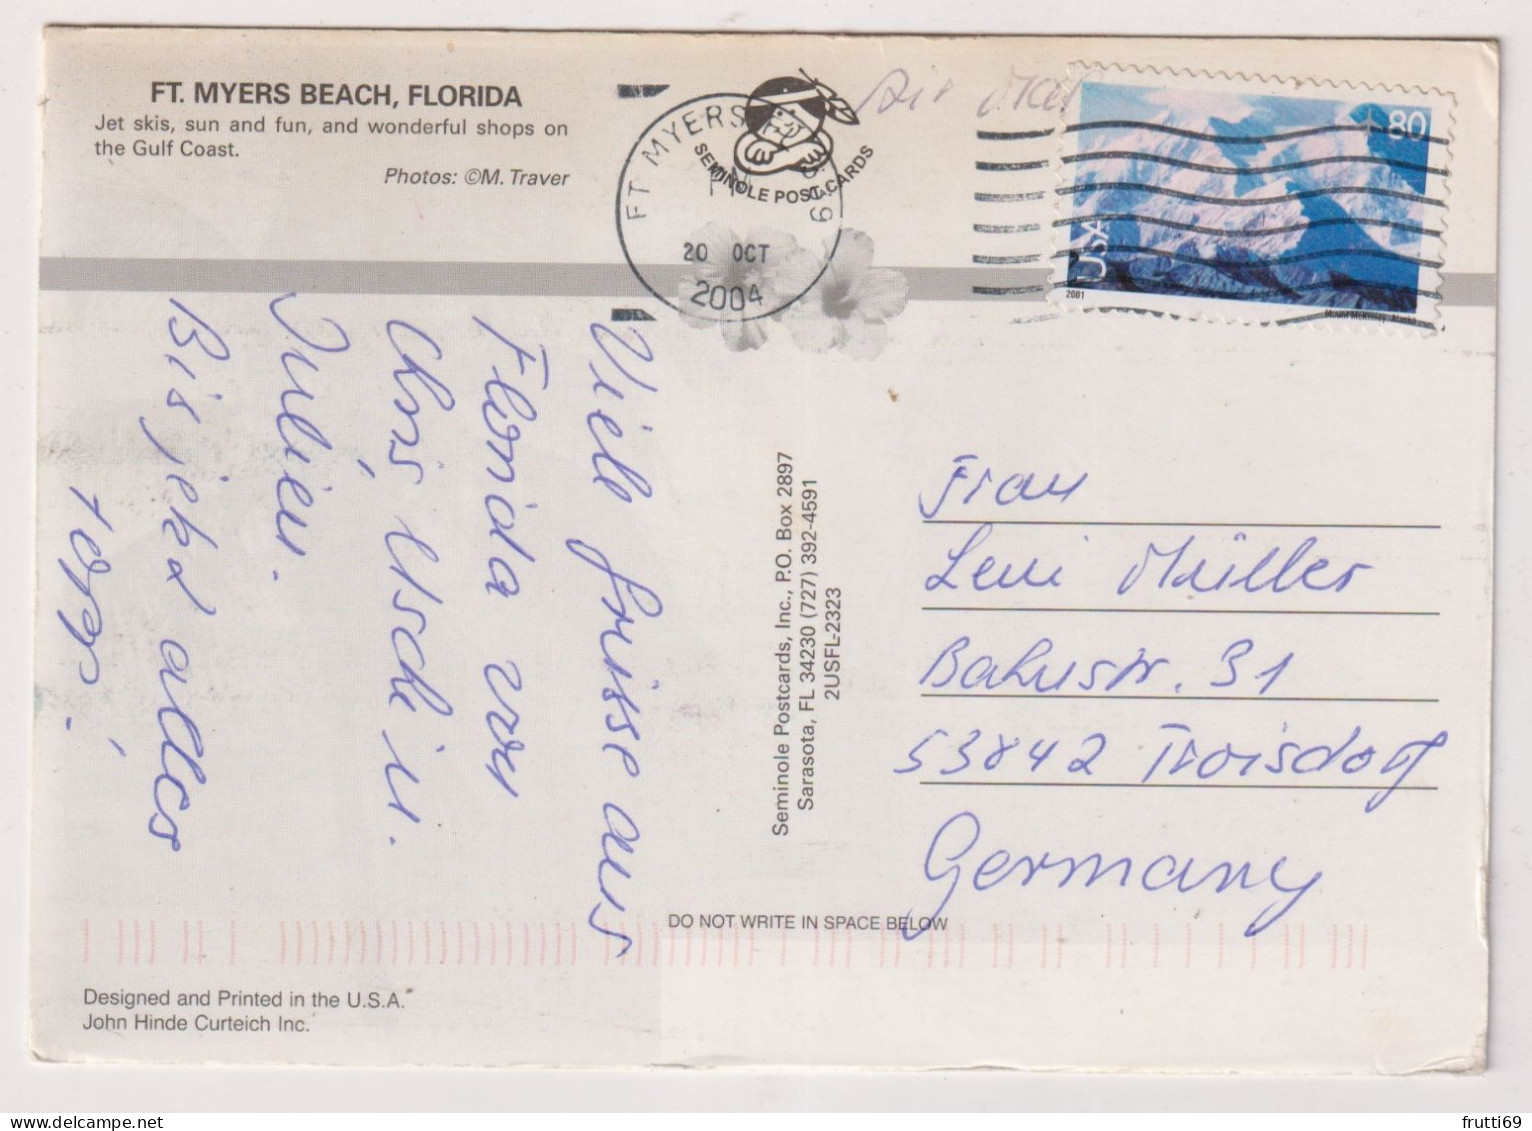 FT. MYERS BEACH, FLORIDA
Jet skis, sun and fun, and wonderful shops on
the Gulf Coast.
Photos: ©M. Traver
FT MYERS
PM
20 OCT
2004
SEMINOLE POST CARDS
Air Mail
80
USA
2001
Mount McKinley, Alaska
Viele Grüsse aus
Florida von
Chris Uschi u.
Julien.
Bis jetzt alles
topp!
Seminole Postcards, Inc., P.O. Box 2897
Sarasota, FL 34230 (727) 392-4591
2USFL-2323
Frau
Leni Müller
Bahnstr. 31
53842 Troisdorf
Germany
DO NOT WRITE IN SPACE BELOW
Designed and Printed in the U.S.A.
John Hinde Curteich Inc.
frutti69